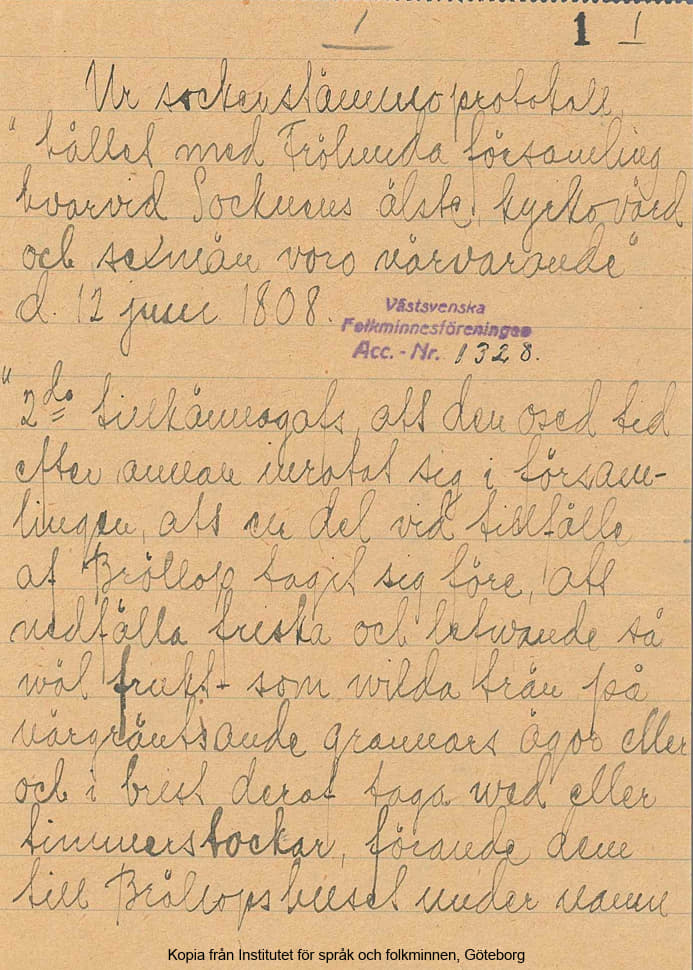 1 1 1
Ur sockenstämmoprotokoll,
"hållet med Frölunda församling
hvarvid Socknens älste, kyrkovärd
och sexmän voro närvarande"
d. 12 juni 1808.
Västsvenska
Folkminnesföreningen
Acc. - Nr. 1328.
"2do tillkännagafs, att den osed tid
efter annan inrotat sig i försam-
lingen, att en del vid tillfälle
af Bröllop tagit sig före, att
nedfälla friska och lefwande så
wäl frukt- som wilda trän på
närgräntsande grannars ägor eller
och i brist deraf taga wed eller
timmerstockar, förande dem
till Bröllopshuset under namn
Kopia från Institutet för språk och folkminnen, Göteborg